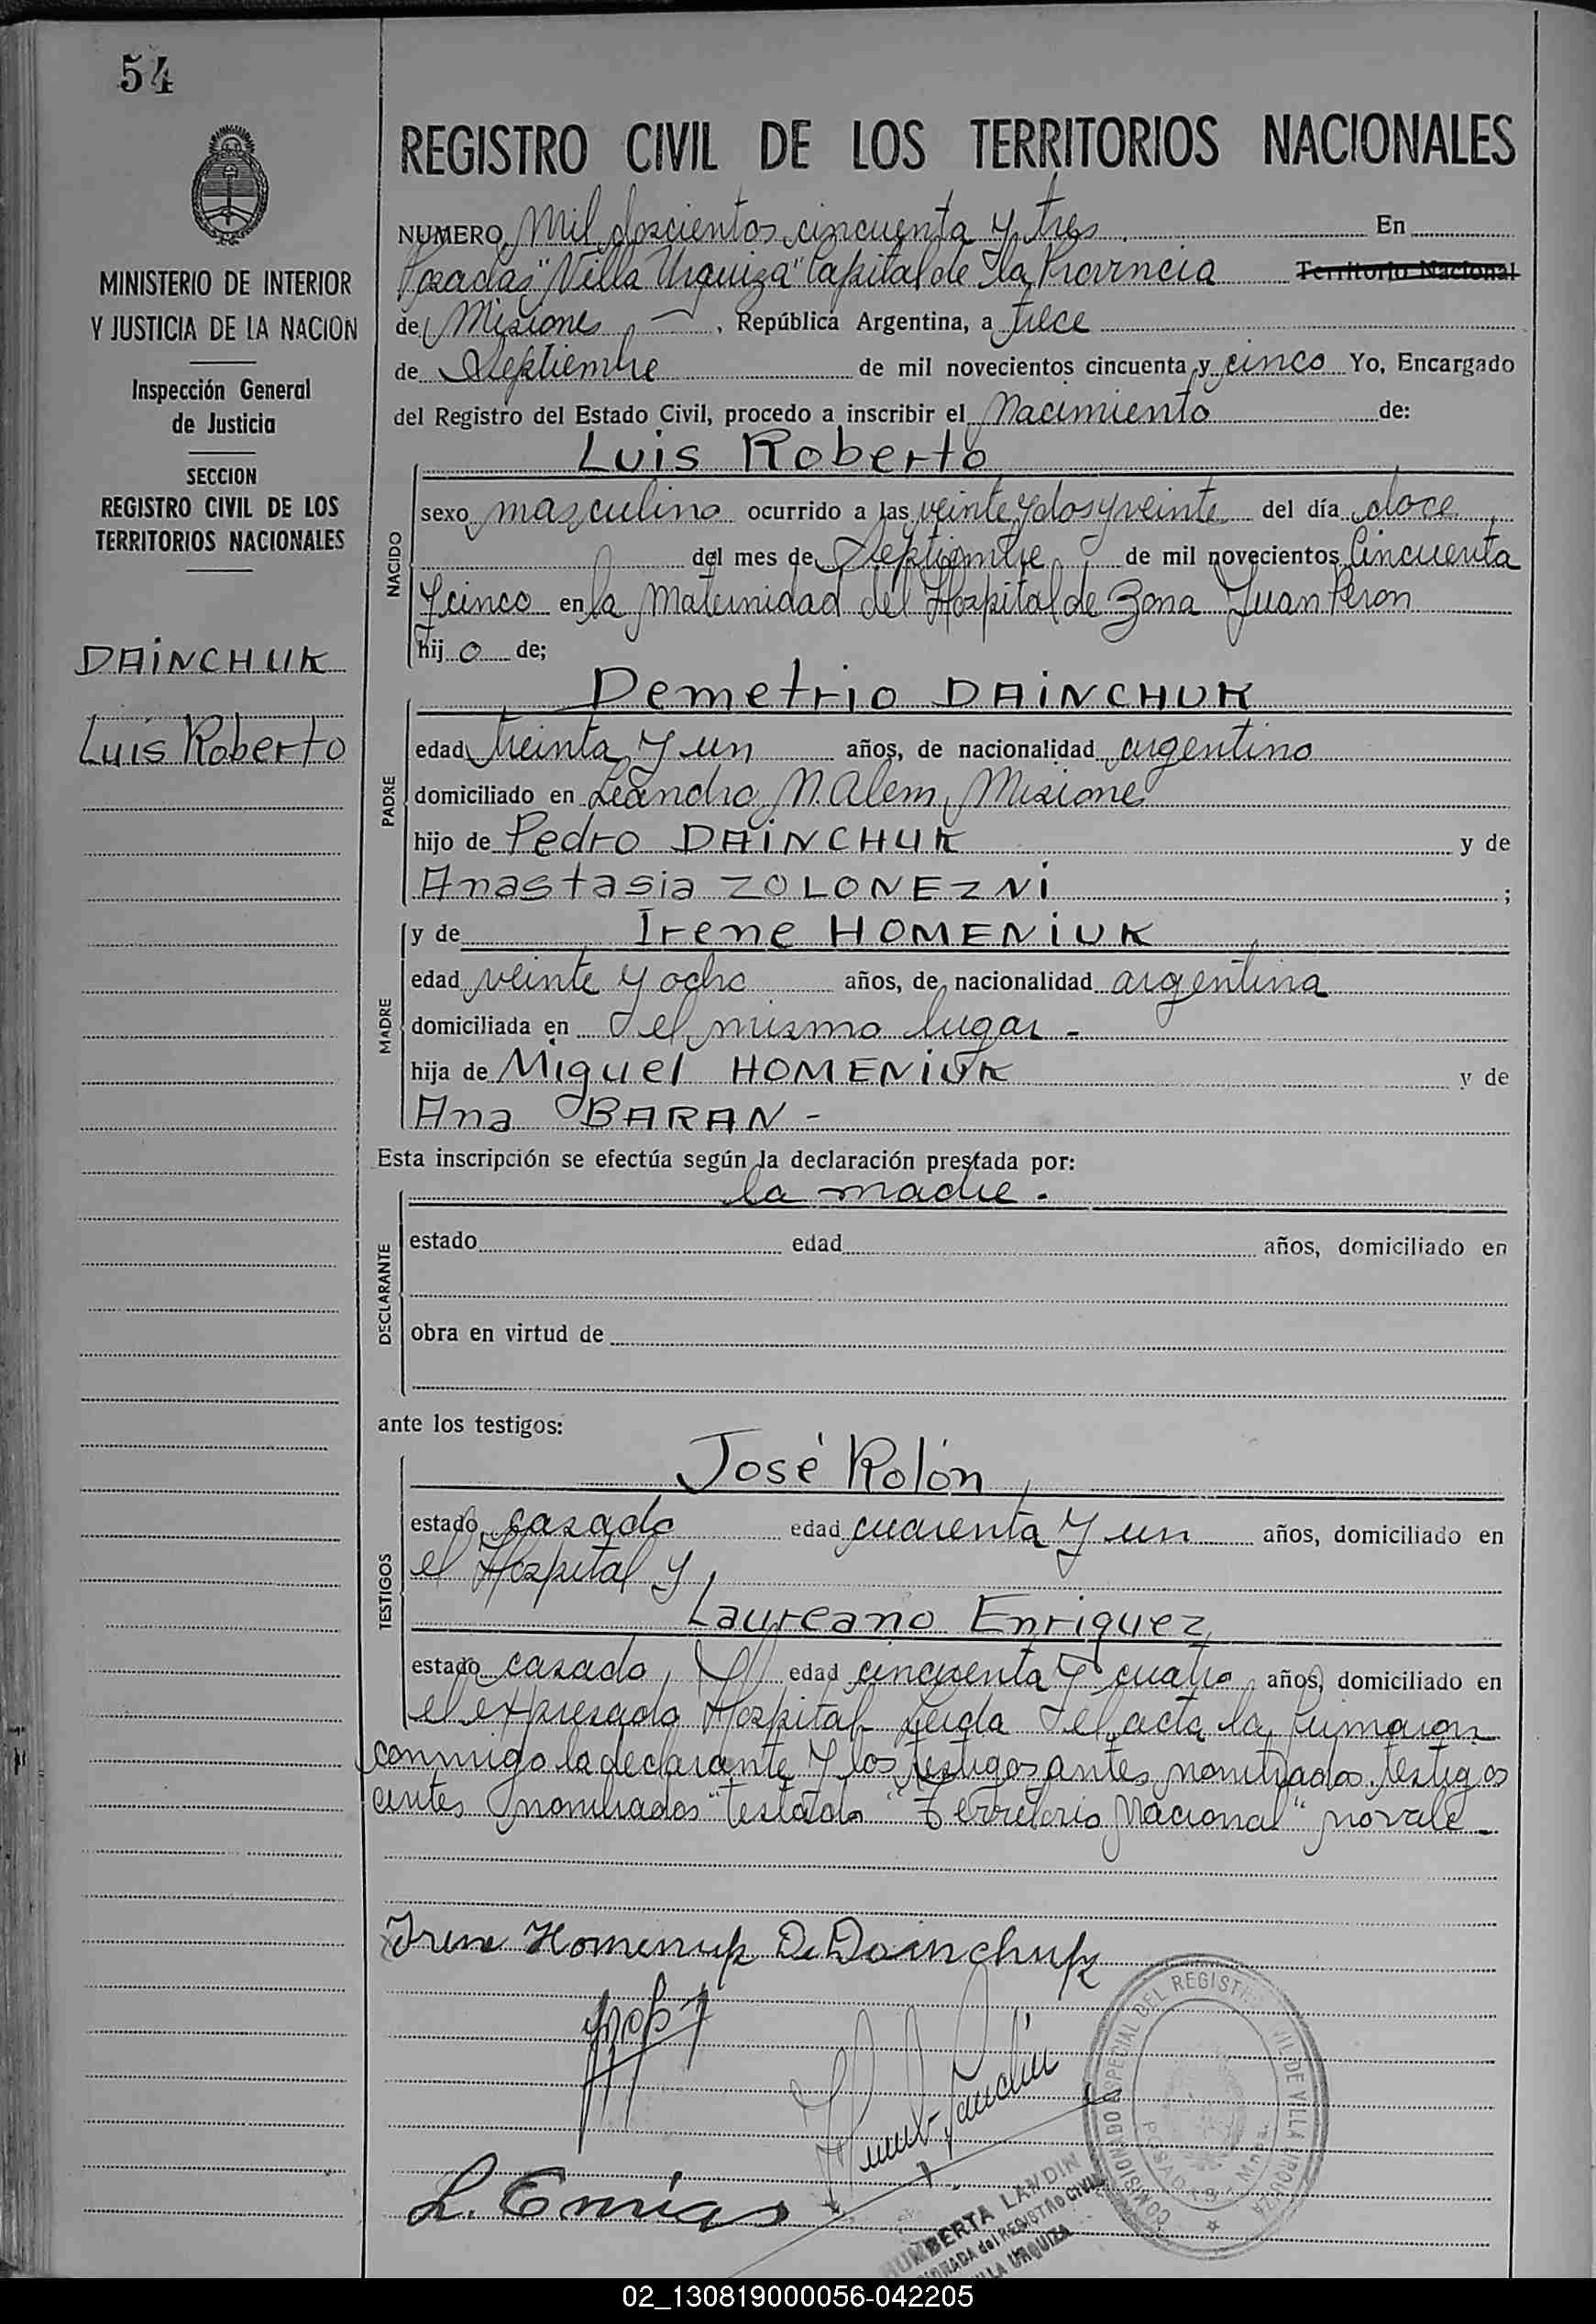 54
MINISTERIO DE INTERIOR
Y JUSTICIA DE LA NACION
Inspección General
de Justicia
SECCION
REGISTRO CIVIL DE LOS
TERRITORIOS NACIONALES
DAINCHUK
Luis Roberto
REGISTRO CIVIL DE LOS TERRITORIOS NACIONALES
NUMERO Mil doscientos cincuenta y tres. En
Posadas "Villa Urquiza" Capital de la Provincia Territorio Nacional
de Misiones, República Argentina, a trece
de Septiembre de mil novecientos cincuenta y cinco Yo, Encargado
del Registro del Estado Civil, procedo a inscribir el Nacimiento de:
Luis Roberto
NACIDO
sexo masculino ocurrido a las veinte y dos y veinte del día doce
del mes de Septiembre de mil novecientos Cincuenta
y cinco en la Maternidad del Hospital de Zona Juan Peron
hijo de;
Demetrio DAINCHUK
PADRE
edad treinta y un años, de nacionalidad argentino
domiciliado en Leandro N. Alem, Misiones
hijo de Pedro DAINCHUK y de
Anastasia ZOLONEZNI ;
MADRE
y de Irene HOMENIUK
edad veinte y ocho años, de nacionalidad argentina
domiciliada en el mismo lugar -
hija de Miguel HOMENIUK y de
Ana BARAN -
Esta inscripción se efectúa según la declaración prestada por:
la madre.
DECLARANTE
estado edad años, domiciliado en
obra en virtud de
ante los testigos:
José Rolón
TESTIGOS
estado casado edad cuarenta y un años, domiciliado en
el Hospital y
Laureano Enriquez
estado casado, edad cincuenta y cuatro años, domiciliado en
el expresado Hospital Leida el acta la firmaron
conmigo la declarante y los testigos antes nombrados. testigos
antes nombrados "testado" "Territorio Nacional" no vale -
Irene Homeniuk De Dainchuk
COMISIONADO ESPECIAL DEL REGISTRO CIVIL DE VILLA URQUIZA
POSADAS
HUMBERTA LANDIN
del REGISTRO CIVIL
VILLA URQUIZA
02_130819000056-042205